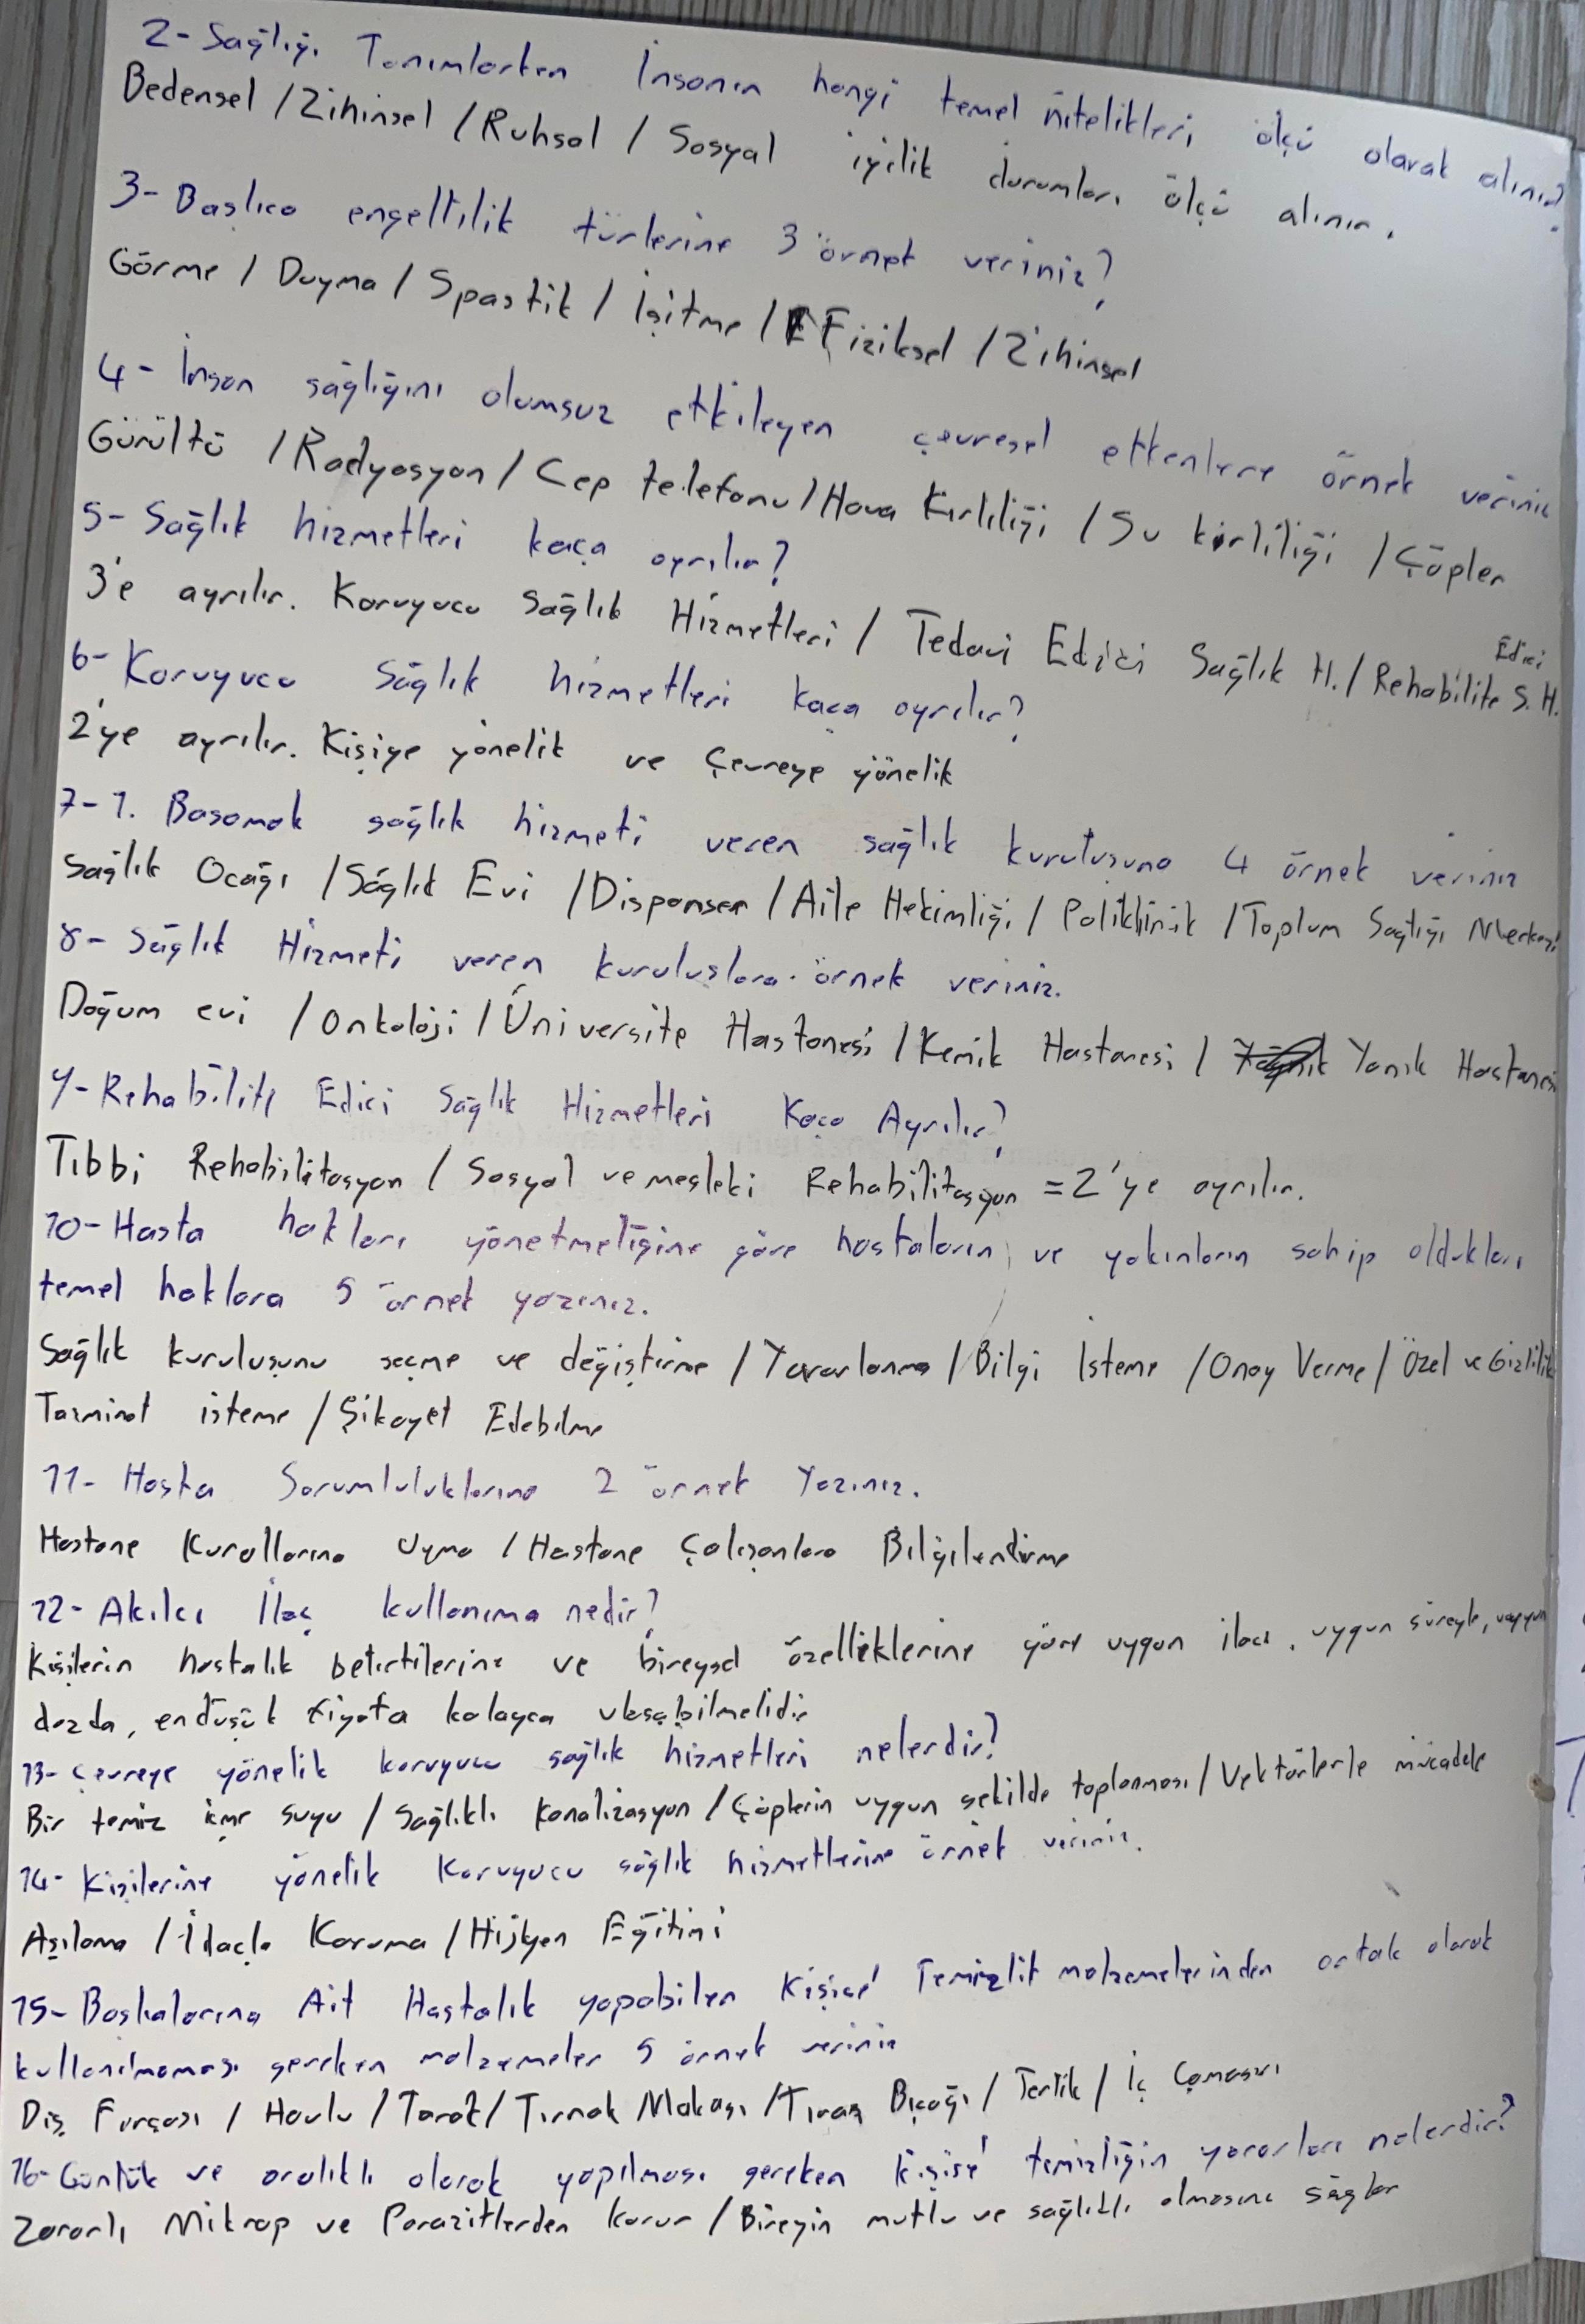 2- Sağlığı Tanımlarken İnsanın hangi temel nitelikleri ölçü olarak alınır?
Bedensel / Zihinsel / Ruhsal / Sosyal iyilik durumları ölçü alınır.
3- Başlıca engellilik türlerine 3 örnek veriniz?
Görme / Duyma / Spastik / İşitme / Fiziksel / Zihinsel
4- İnsan sağlığını olumsuz etkileyen çevresel etkenlere örnek veriniz
Gürültü / Radyasyon / Cep telefonu / Hava Kirliliği / Su kirliliği / Çöpler
5- Sağlık hizmetleri kaça ayrılır?
3'e ayrılır. Koruyucu Sağlık Hizmetleri / Tedavi Edici Sağlık H. / Rehabilite Edici S. H.
6- Koruyucu Sağlık hizmetleri kaça ayrılır?
2'ye ayrılır. Kişiye yönelik ve Çevreye yönelik
7- 1. Basamak sağlık hizmeti veren sağlık kuruluşuna 4 örnek veriniz
Sağlık Ocağı / Sağlık Evi / Dispanser / Aile Hekimliği / Poliklinik / Toplum Sağlığı Merkezi
8- Sağlık Hizmeti veren kuruluşlara örnek veriniz.
Doğum evi / Onkoloji / Üniversite Hastanesi / Kemik Hastanesi / Yanık Hastanesi
9- Rehabilite Edici Sağlık Hizmetleri Kaça Ayrılır?
Tıbbi Rehabilitasyon / Sosyal ve mesleki Rehabilitasyon = 2'ye ayrılır.
10- Hasta hakları yönetmeliğine göre hastaların ve yakınların sahip oldukları
temel haklara 5 örnek yazınız.
Sağlık kuruluşunu seçme ve değiştirme / Yararlanma / Bilgi İsteme / Onay Verme / Özel ve Gizlilik
Tazminat isteme / Şikayet Edebilme
11- Hasta Sorumluluklarına 2 örnek Yazınız.
Hastane Kurallarına Uyma / Hastane Çalışanlara Bilgilendirme
12- Akılcı İlaç kullanıma nedir?
Kişilerin hastalık belirtilerine ve bireysel özelliklerine göre uygun ilacı, uygun süreyle, uygun
dozda, en düşük fiyata kolayca ulaşabilmelidir
13- Çevreye yönelik koruyucu sağlık hizmetleri nelerdir?
Bir temiz içme suyu / Sağlıklı Kanalizasyon / Çöplerin uygun şekilde toplanması / Vektörlerle mücadele
14- Kişilerine yönelik Koruyucu sağlık hizmetlerine örnek veriniz.
Aşılama / İlaçla Koruma / Hijyen Eğitimi
15- Başkalarına Ait Hastalık yapabilen Kişisel Temizlik malzemelerinden ortak olarak
kullanılmaması gereken malzemeler 5 örnek veriniz
Diş Fırçası / Havlu / Tarak / Tırnak Makası / Tıraş Bıçağı / Terlik / İç Çamaşırı
16- Günlük ve aralıklı olarak yapılması gereken kişisel temizliğin yararları nelerdir?
Zararlı Mikrop ve Parazitlerden korur / Bireyin mutlu ve sağlıklı olmasını sağlar